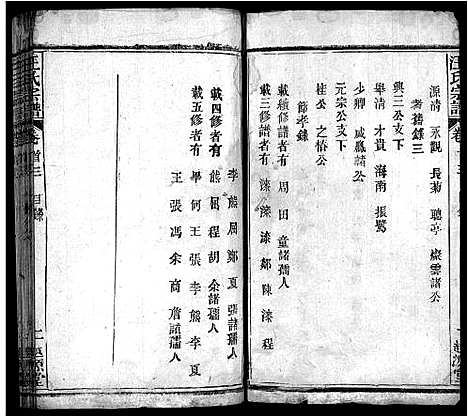 汪氏宗譜
源清 永觀 長菊 聽亭 燦雲諸公
耆舊錄三
與三公支下
舉清 才貴 海南 振鷺
少卿 咸鳳諸公
元宗公支下
桂公 之椿公
節孝錄
載續修譜者有 周 田 童諸孺人
載三修譜者有 漆 漆 鄒 陳 漆 程
李 熊 周 鄭 夏 張諸孺人
載四修者有 熊 周 程 胡 余諸孺人
載五修者有 畢 何 王 張 李 熊 李 夏
王 張 馮 余 商 詹諸孺人
汪氏宗譜
卷首三 目錄
二 越源堂